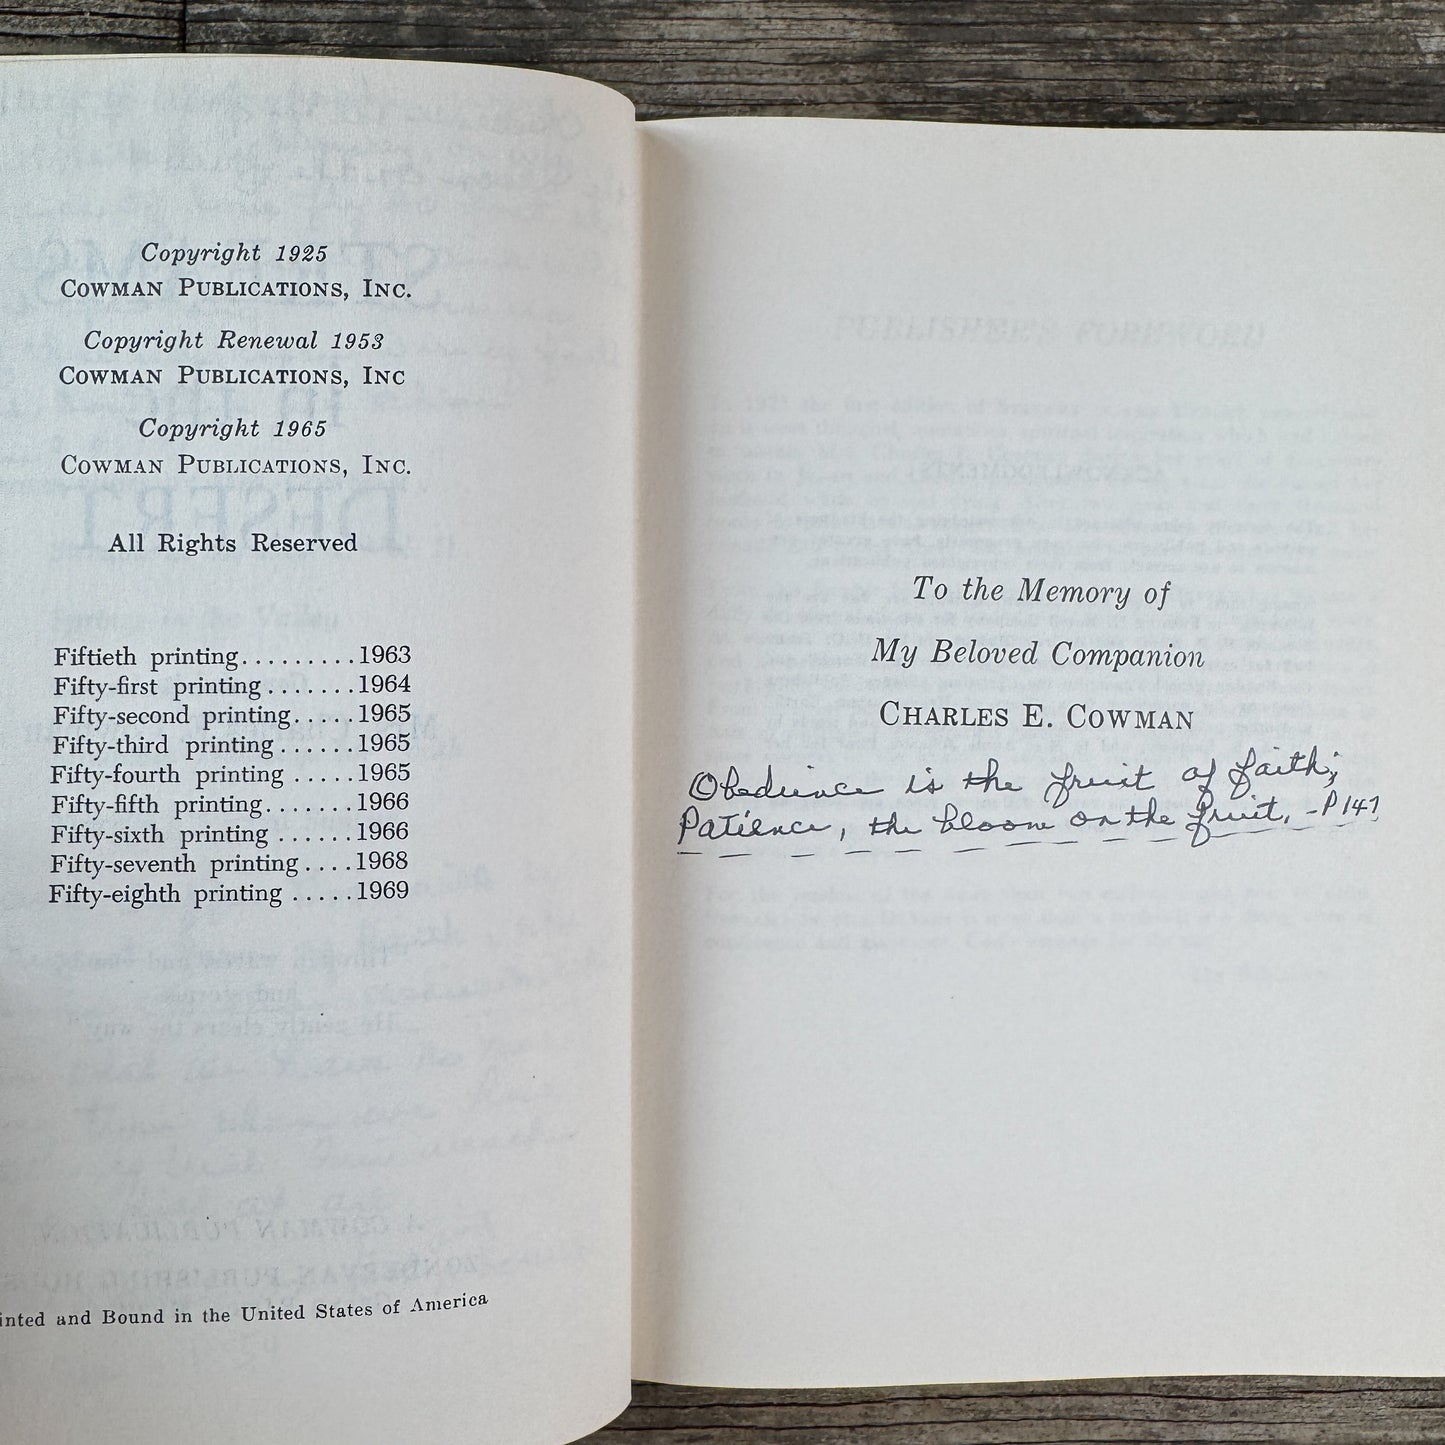 Copyright 1925
COWMAN PUBLICATIONS, INC.
Copyright Renewal 1953
COWMAN PUBLICATIONS, INC
Copyright 1965
COWMAN PUBLICATIONS, INC.
All Rights Reserved
Fiftieth printing.........1963
Fifty-first printing.......1964
Fifty-second printing.....1965
Fifty-third printing......1965
Fifty-fourth printing.....1965
Fifty-fifth printing.......1966
Fifty-sixth printing......1966
Fifty-seventh printing....1968
Fifty-eighth printing.....1969
inted and Bound in the United States of America
To the Memory of
My Beloved Companion
CHARLES E. COWMAN
Obedience is the fruit of faith;
Patience, the bloom on the fruit. -P 147